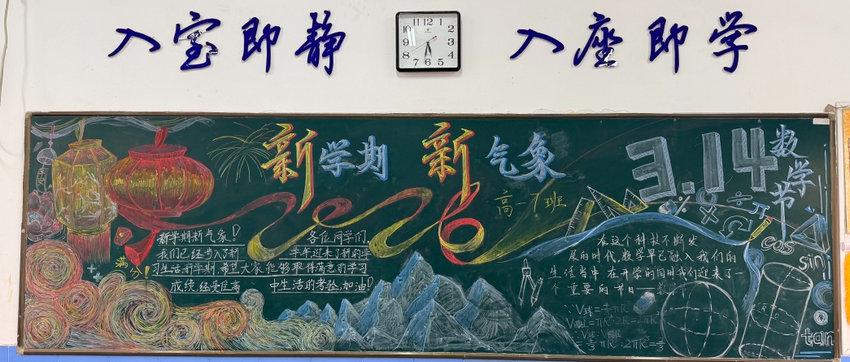 入室即静
入座即学
新学期 新气象
高一7班
3.14
数学节
新学期新气象!
我们已经步入了新
习生活新学期,希望大家能够取得满意的学习
成绩,经受住高
满分!
各位同学们
学年迎来了新的学
中生活的考验,加油!
在这个科技不断发
展的时代,数学早已融入我们的
生活当中 在开学的同时我们迎来了一
个重要的节日
cos
sin
tan